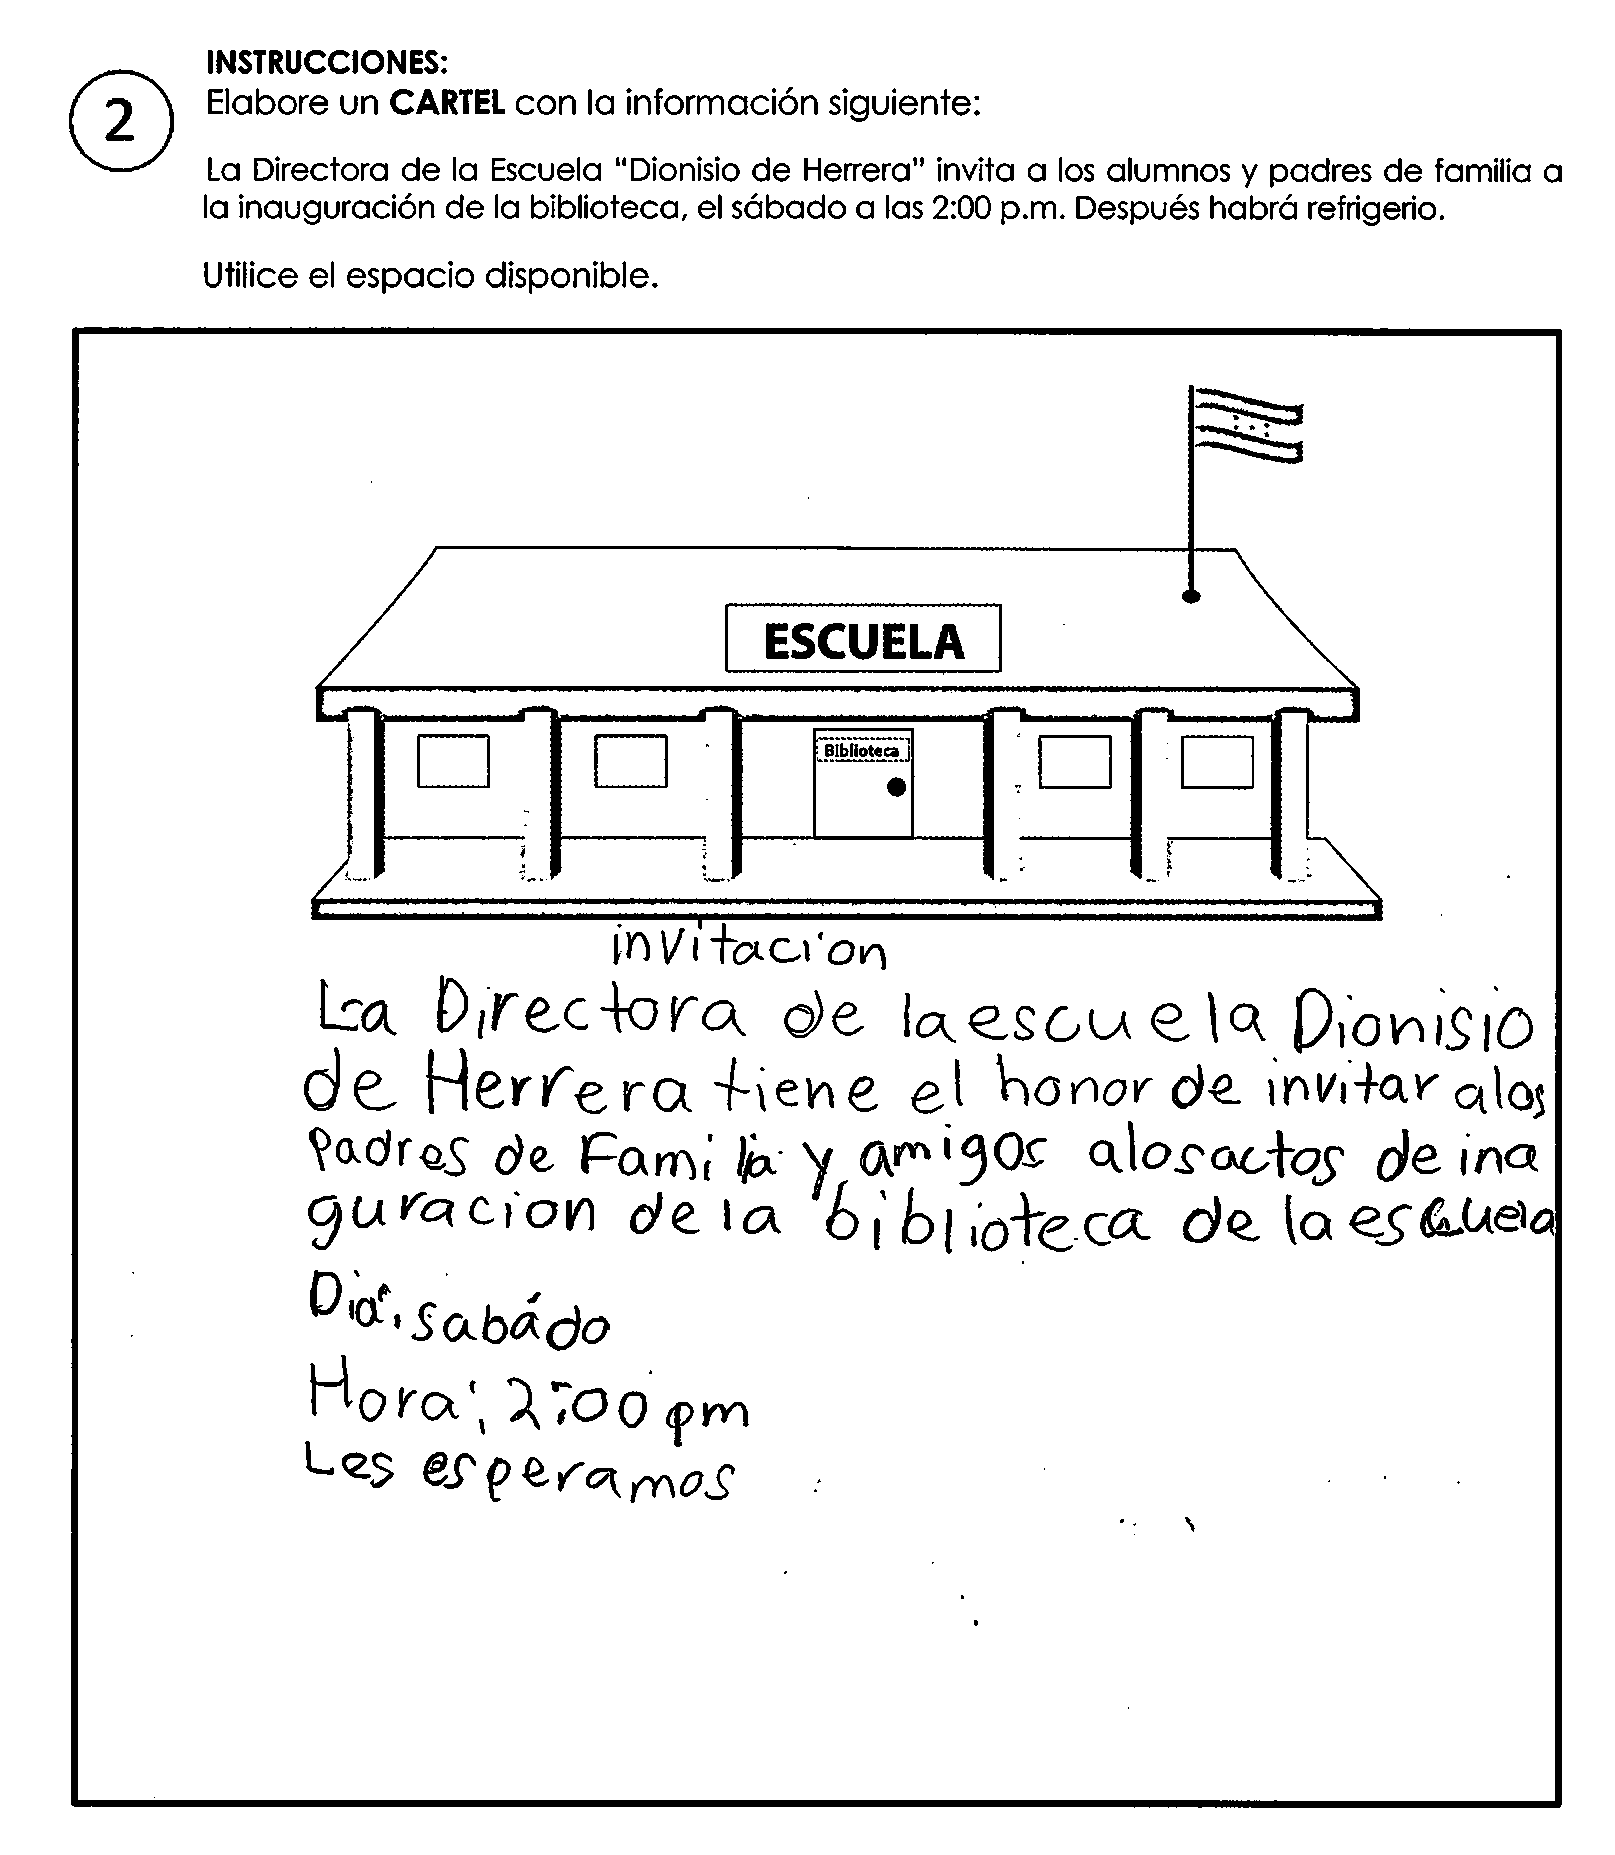 INSTRUCCIONES:
2
Elabore un CARTEL con la información siguiente:
La Directora de la Escuela "Dionisio de Herrera" invita a los alumnos y padres de familia a
la inauguración de la biblioteca, el sábado a las 2:00 p.m. Después habrá refrigerio.
Utilice el espacio disponible.
ESCUELA
Biblioteca
invitacion
La Directora de laescuela Dionisio
de Herrera tiene el honor de invitar alos
Padres de Familia y amigos alosactos de ina
guracion de la biblioteca de la escuela
Dia: sabádo
Hora: 2:00 pm
Les esperamos